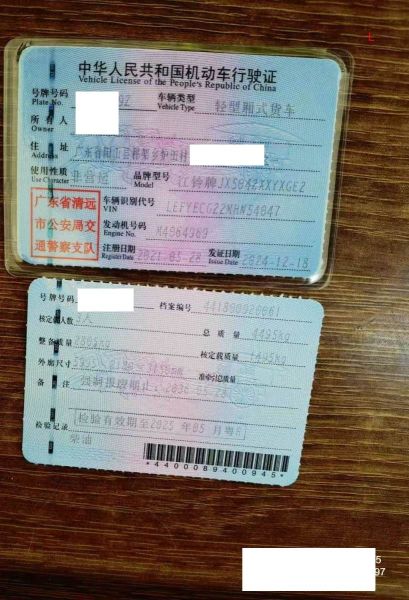 中华人民共和国机动车行驶证
Vehicle License of the People's Republic of China
号牌号码 9Z 车辆类型 轻型厢式货车
Plate No. Vehicle Type
所有人
Owner
住址 广东省
Address
使用性质 非营运 品牌型号 江铃牌JX5042XXYXGE2
Use Character Model
广东省清远
市公安局交
通警察支队
车辆识别代号
VIN
发动机号码
Engine No.
注册日期 2021-05-28 发证日期 2024-12-18
Register Date Issue Date
号牌号码 档案编号
核定载人数 3人 总质量 4495kg
整备质量 核定载质量 1495kg
外廓尺寸 准牵引总质量
备注 强制报废期止:2036-05-28
检验记录 检验有效期至2025年05月粤R
柴油
*4400089400945*
L
5
97